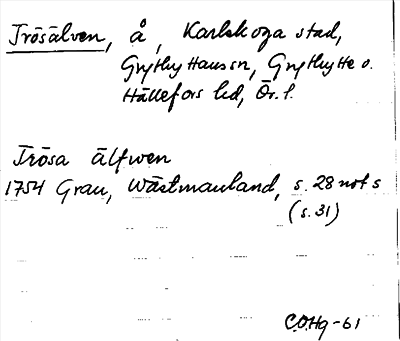 Trösälven, å, Karlskoga stad,
Grythyttans sn, Grythytte o.
Hällefors hd, Ör. l.
Trösa älfwen
1754 Grau, Wästmanland, s. 28 not s
(s. 31)
C.O.Hg-61